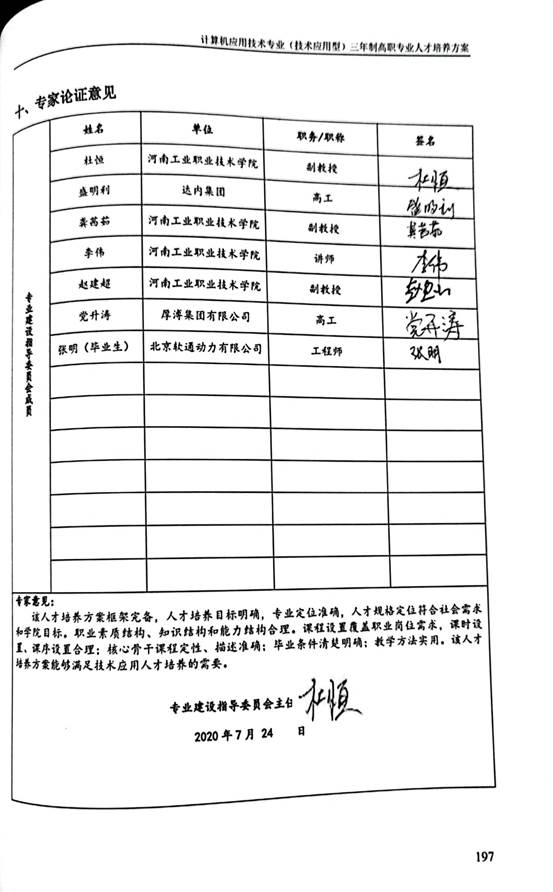 计算机应用技术专业（技术应用型）三年制高职专业人才培养方案
十、专家论证意见
姓名 单位 职务/职称 签名
专业建设指导委员会成员
杜恒 河南工业职业技术学院 副教授 杜恒
盛明利 达内集团 高工 盛明利
龚茜茹 河南工业职业技术学院 副教授 龚茜茹
李伟 河南工业职业技术学院 讲师 李伟
赵建超 河南工业职业技术学院 副教授
党升涛 厚溥集团有限公司 高工 党升涛
张明（毕业生） 北京软通动力有限公司 工程师 张明
专家意见：
该人才培养方案框架完备，人才培养目标明确，专业定位准确，人才规格定位符合社会需求
和学院目标。职业素质结构、知识结构和能力结构合理。课程设置覆盖职业岗位需求，课时设
置、课序设置合理；核心骨干课程定性、描述准确；毕业条件清楚明确；教学方法实用。该人才
培养方案能够满足技术应用人才培养的需要。
专业建设指导委员会主任 杜恒
2020年7月24 日
197